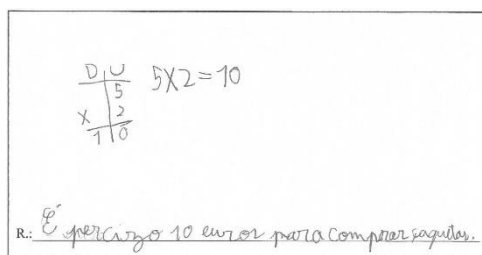 D U
5 5X2=10
X 2
1 0
R.: É percizo 10 euros para comprar saquetas.